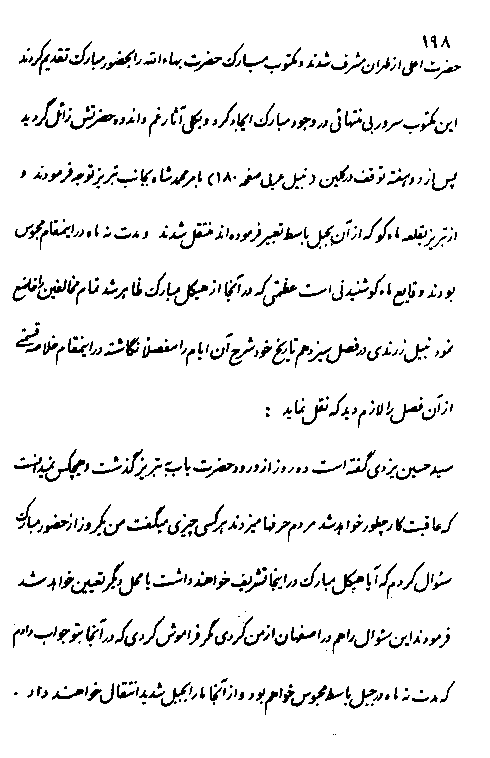 ۱۹۸
حضرت اعلی از طهران مشرف شدند و مکتوب مبارک حضرت بهاءالله را بحضور مبارک تقدیم کردند
این مکتوب سرور بی منتهائی در وجود مبارک ایجاد کرد و بکلی آثار غم و اندوه حضرتش زائل گردید
پس از دو هفته توقف در کلین ( نبیل عربی صفحه ۱۸۰ ) بامر محمد شاه بجانب تبریز توجه فرمودند و
از تبریز بقلعه ماه کو که از آن بجبل باسط تعبیر فرموده اند منتقل شدند و مدت نه ماه در اینمقام محبوس
بودند وقایع ماه کو شنیدنی است عظمتی که در آنجا از هیکل مبارک ظاهر شد تمام مخالفین را خاضع
نمود نبیل زرندی در فصل سیزدهم تاریخ خود شرح آن ایام را مفصلاً نگاشته در اینمقام خلاصه قسمتی
از آن فصل را لازم دید که نقل نماید :
سید حسین یزدی گفته است ده روز از ورود حضرت باب به تبریز گذشت و هیچکس نمیدانست
که عاقبت کار چطور خواهد شد مردم حرفها میزدند هر کسی چیزی میگفت من یکروز از حضور مبارک
سئوال کردم که آیا هیکل مبارک در اینجا تشریف خواهند داشت یا محل دیگر تعیین خواهد شد
فرمودند این سئوال را هم در اصفهان از من کردی مگر فراموش کردی که در آنجا بتو جواب دادم
که مدت نه ماه در جبل باسط محبوس خواهم بود و از آنجا ما را بجبل شدید انتقال خواهند داد .